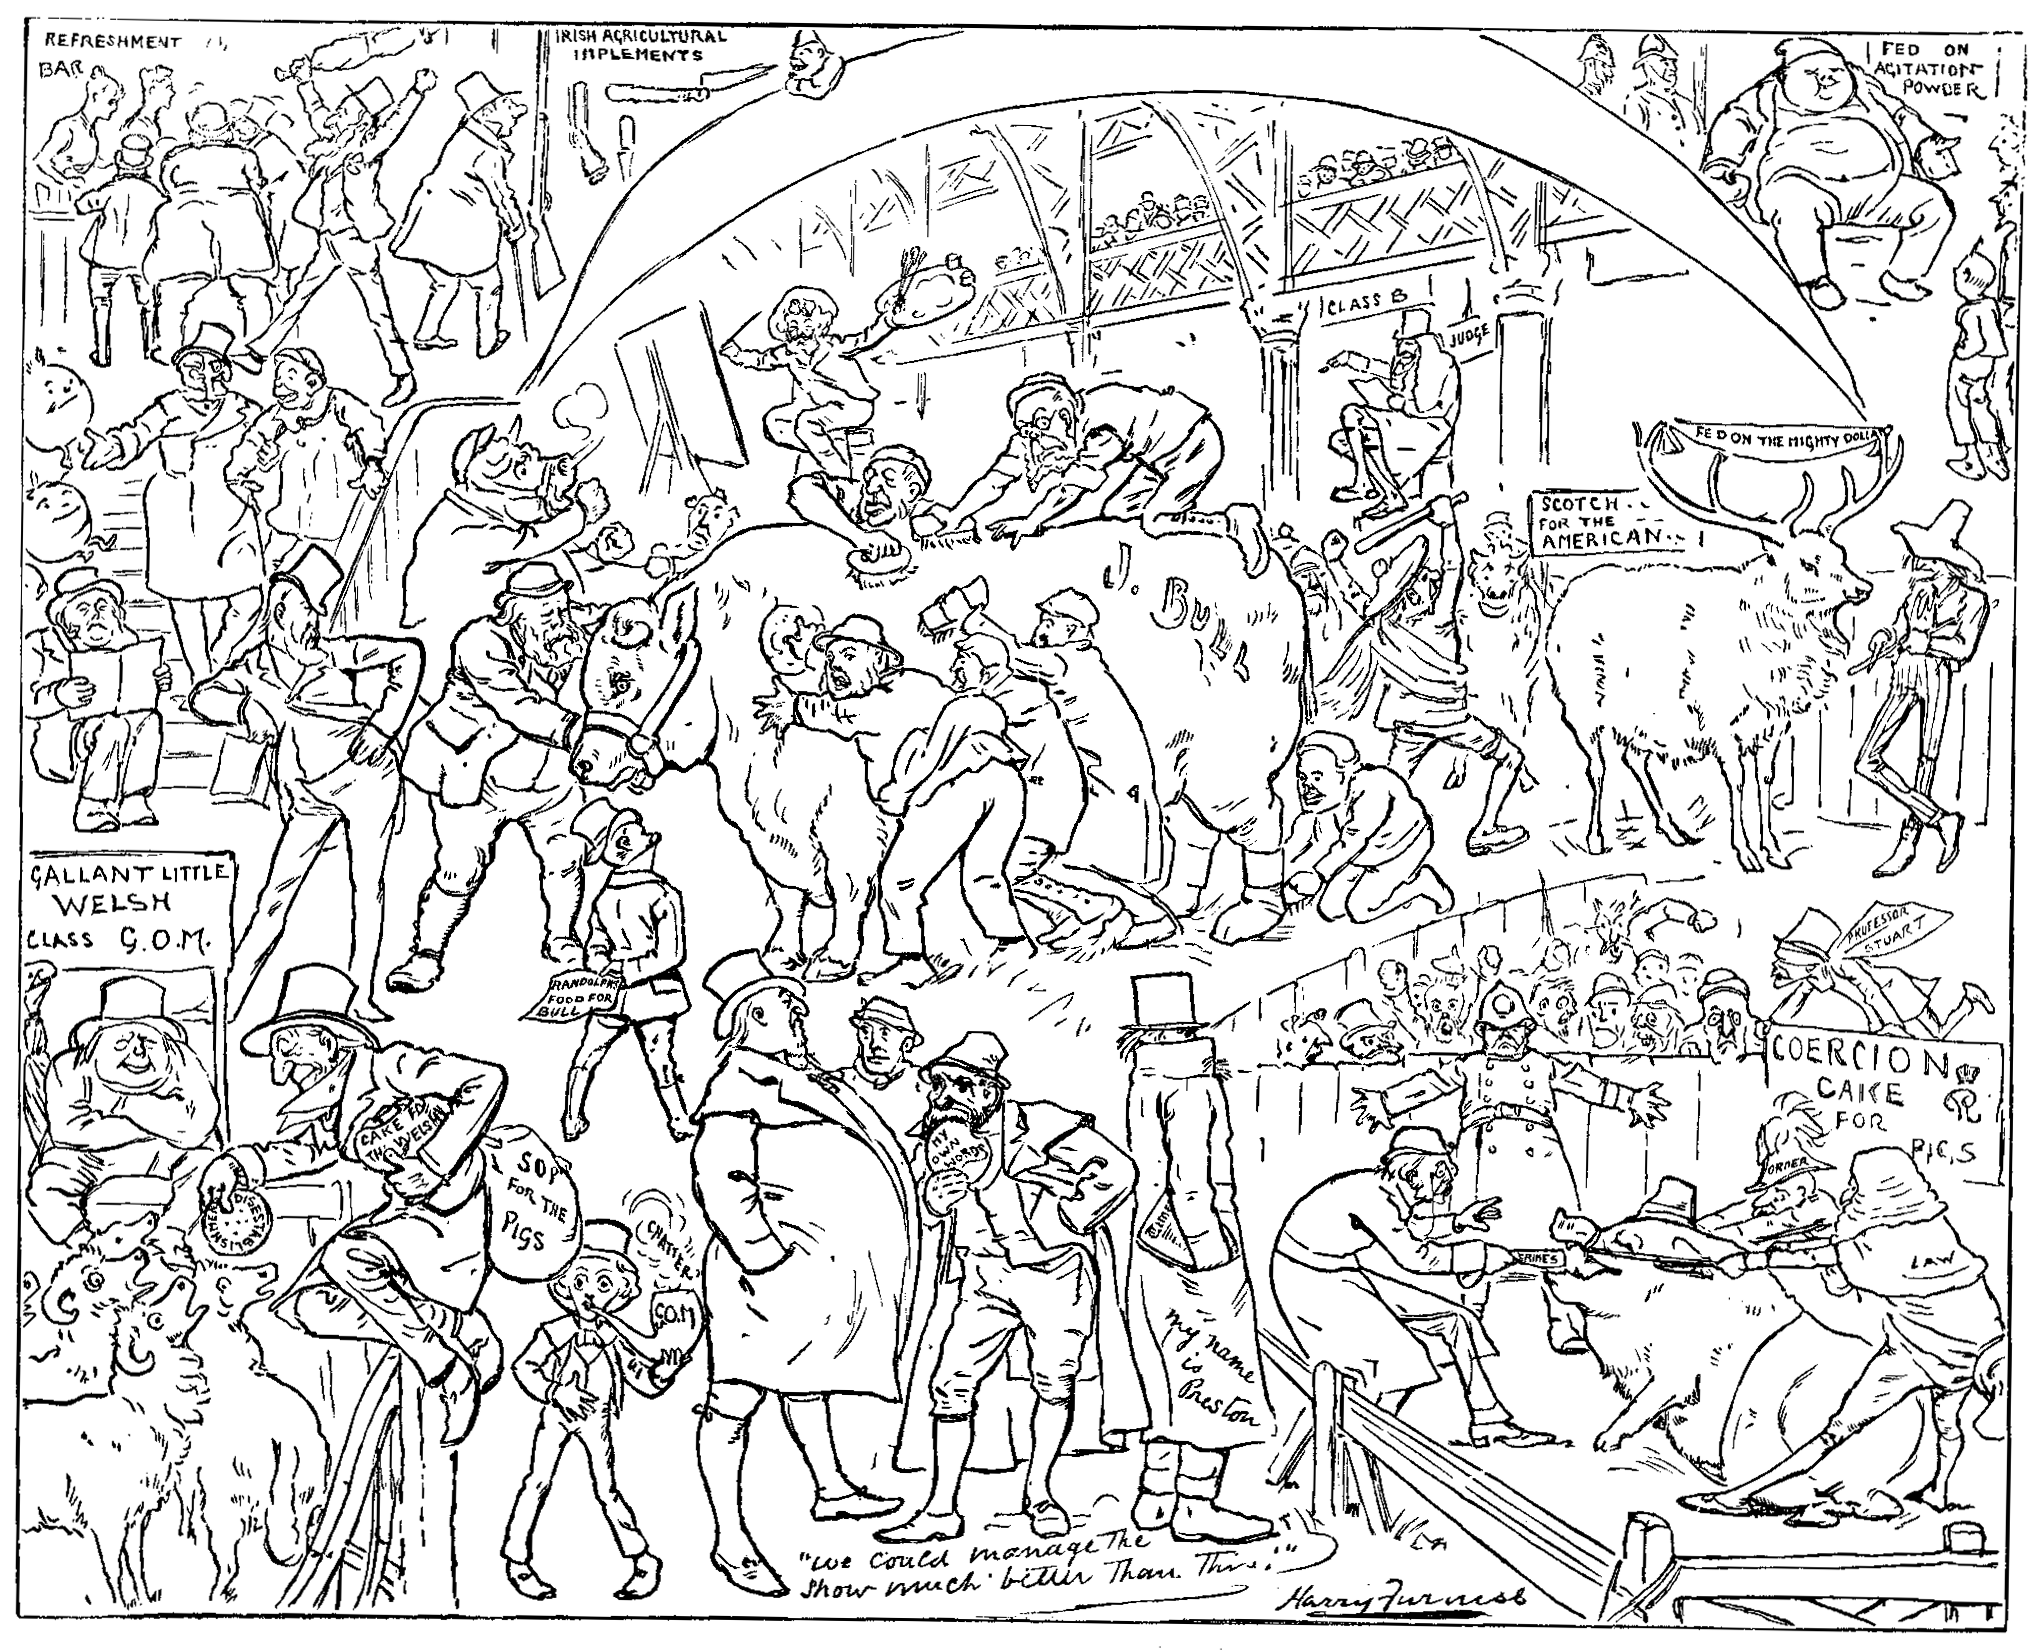 REFRESHMENT
BAR
IRISH AGRICULTURAL
IMPLEMENTS
FED ON
AGITATION
POWDER
CLASS B
JUDGE
FED ON THE MIGHTY DOLLA
SCOTCH
FOR THE
AMERICAN
J. BULL
GALLANT LITTLE
WELSH
CLASS G.O.M.
RANDOLPH'S
FOOD FOR
BULL
PROFESSOR
STUART
COERCION
CAKE
FOR
PIGS
CAKE FOR
THE WELSH
MY
OWN
WORDS
SOP
FOR THE
PIGS
DISESTABLISHMENT
CHATTER
G.O.M
ORDER
CRIMES
LAW
my name
is
Preston
"we could manage the
show much better than this!"
Harry Furniss